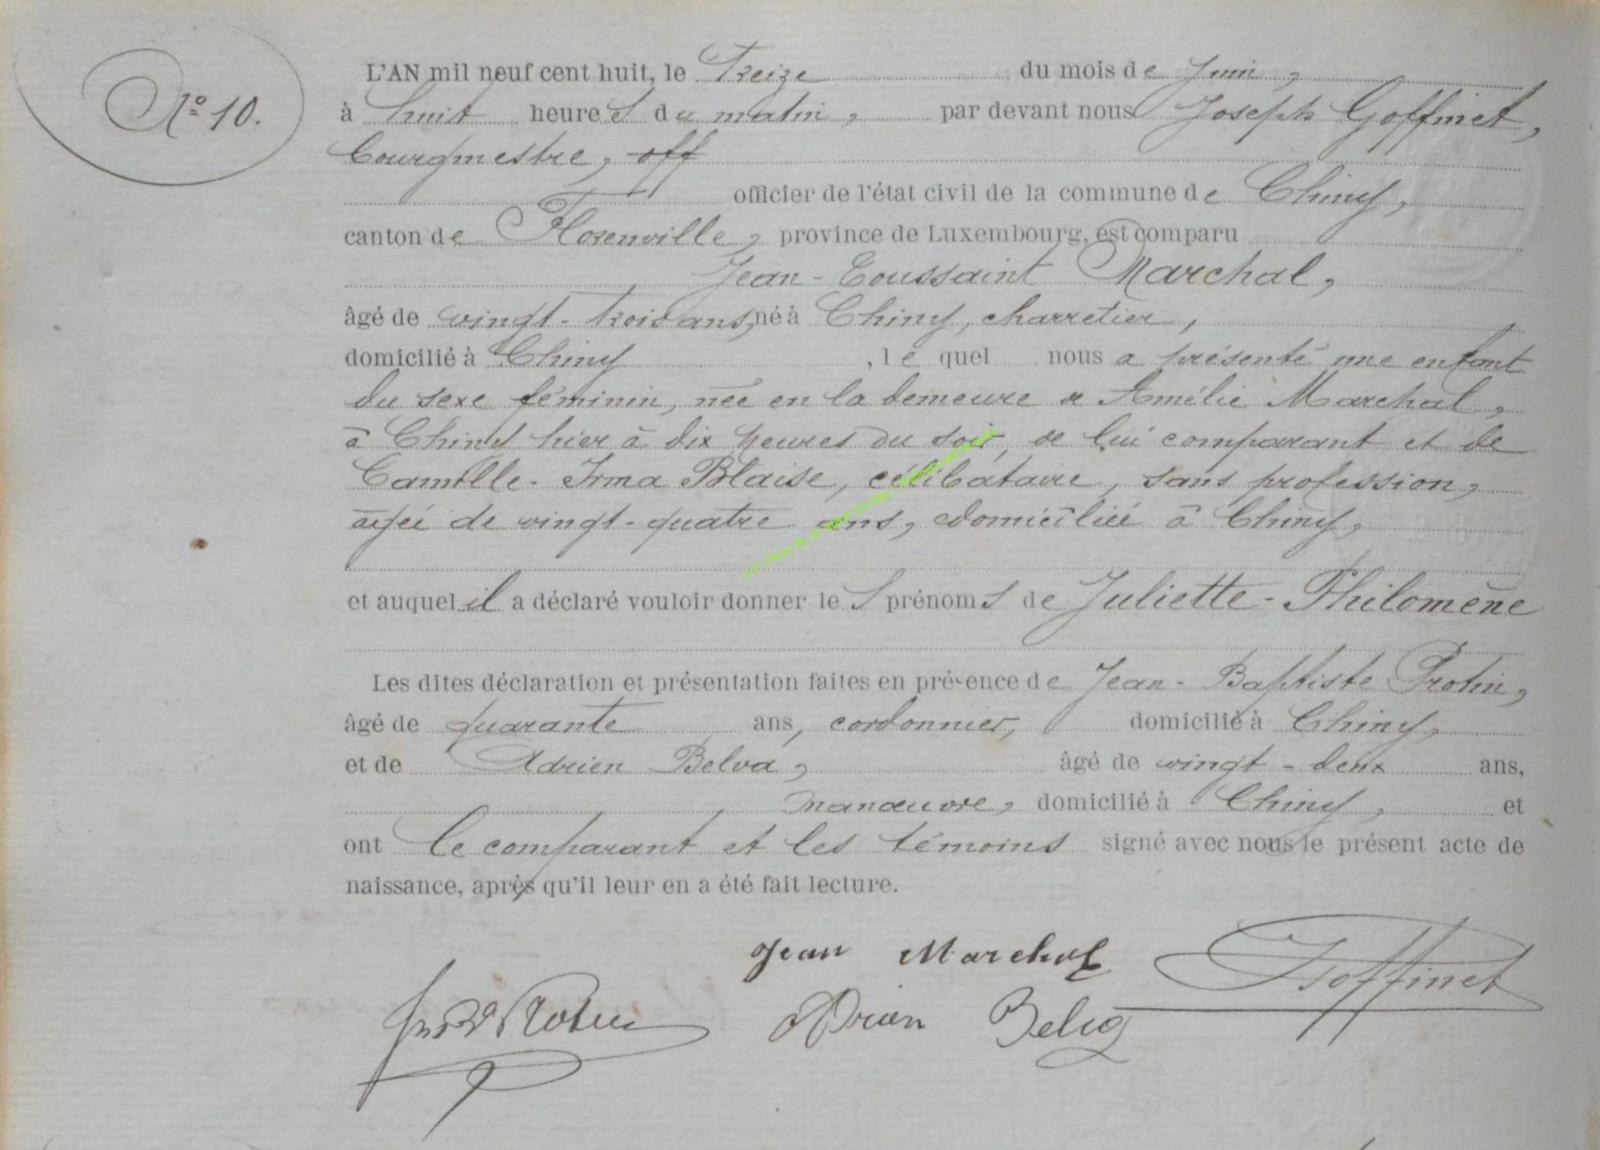 N° 10.
L'AN mil neuf cent huit, le Treize du mois de Juin,
à huit heures du matin, par devant nous Joseph Goffinet,
bourgmestre, off
officier de l'état civil de la commune de Chiny,
canton de Florenville, province de Luxembourg, est comparu
Jean-Toussaint Marchal,
âgé de vingt-trois ans, né à Chiny, charretier,
domicilié à Chiny, lequel nous a présenté une enfant
du sexe féminin, née en la demeure de Amélie Marchal,
à Chiny hier à dix heures du soir, de lui comparant et de
Camille-Irma Blaise, célibataire, sans profession,
agée de vingt-quatre ans, domiciliée à Chiny,
et auquel il a déclaré vouloir donner les prénoms de Juliette-Philomène
Les dites déclaration et présentation faites en présence de Jean-Baptiste Protin,
âgé de quarante ans, cordonnier, domicilié à Chiny,
et de Adrien Belva, âgé de vingt-deux ans,
manœuvre, domicilié à Chiny, et
ont le comparant et les témoins signé avec nous le présent acte de
naissance, après qu'il leur en a été fait lecture.
Jean Marchal
JGoffinet
Adrien Belva